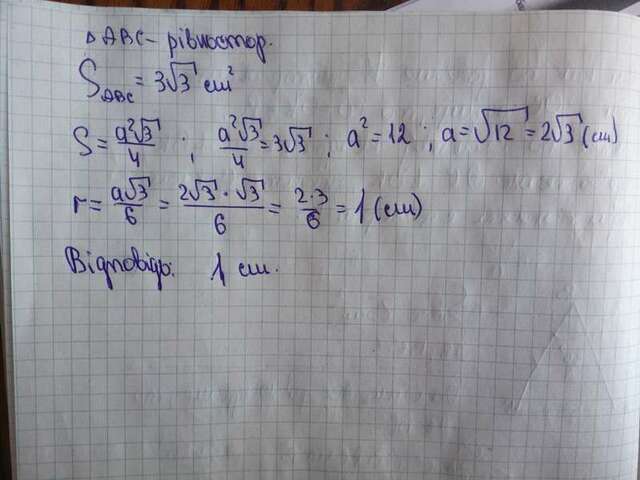 △ABC - рівностор.
S△ABC = 3√3 см²
S = a²√3/4 ; a²√3/4 = 3√3 ; a² = 12 ; a = √12 = 2√3 (см)
r = a√3/6 = 2√3·√3/6 = 2·3/6 = 1 (см)
Відповідь: 1 см.